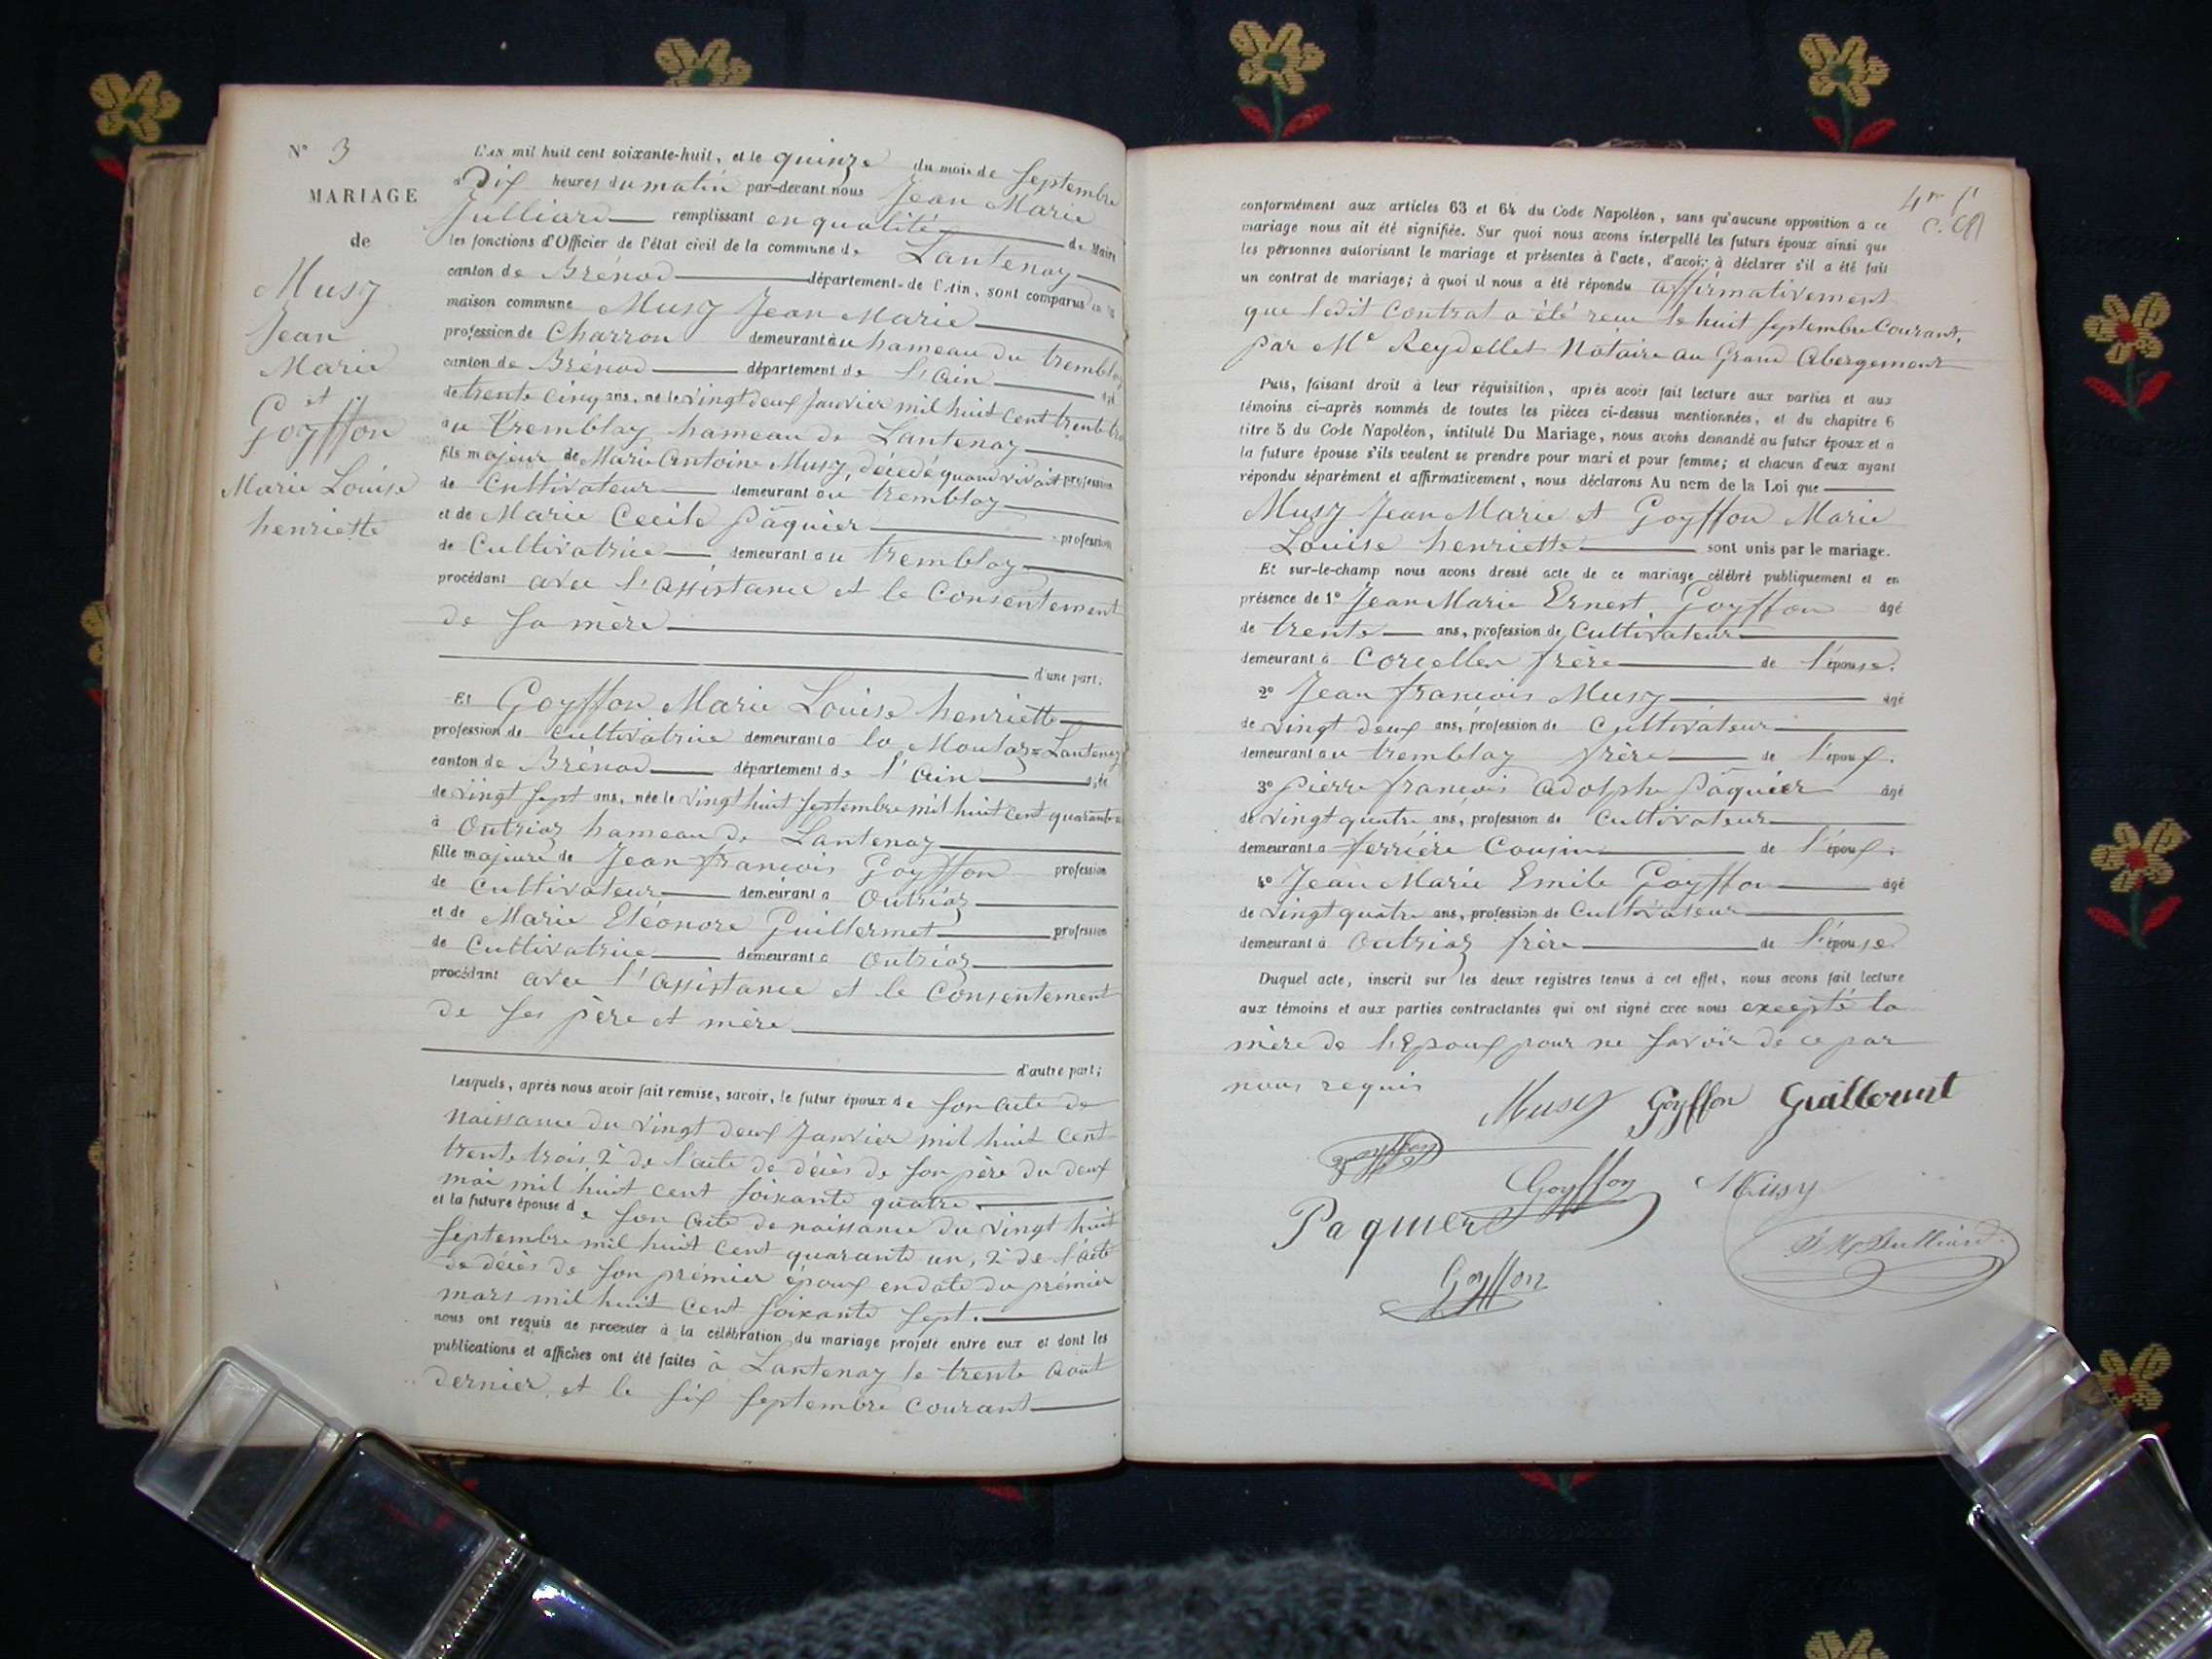 N° 3
MARIAGE
de
Musy
Jean
Marie
et
Goyffon
Marie Louise
henriette
L'AN mil huit cent soixante-huit, et le quinze du mois de Septembre
à Dix heures du matin par-devant nous Jean Marie
Julliard remplissant en qualité de Maire
les fonctions d'Officier de l'état civil de la commune de Lantenay
canton de Brénod département de l'Ain, sont comparus en la
maison commune Musy Jean Marie
profession de Charron demeurant au hameau du tremblay
canton de Brénod département de l'ain âgé
de trente cinq ans, né le vingt deux Janvier mil huit cent trente trois
au tremblay hameau de Lantenay
fils majeur de Marie Antoine Musy, décedé quand vivait profession
de Cultivateur demeurant au tremblay
et de Marie Cecile Pâquier profession
de Cultivatrice demeurant au tremblay
procédant avec l'assistance et le Consentement
de sa mère
d'une part.
Et Goyffon Marie Louise henriette
profession de Cultivatrice demeurant à la Moulaz=Lantenay
canton de Brénod département de l'ain âgée
de vingt sept ans, née le vingt huit septembre mil huit cent quarante
à Outriaz hameau de Lantenay
fille majeure de Jean françois Goyffon profession
de Cultivateur demeurant à Outriaz
et de Marie Eléonore Guillermet profession
de Cultivatrice demeurant à Outriaz
procédant avec l'assistance et le Consentement
de ses père et mère
d'autre part;
Lesquels, après nous avoir fait remise, savoir, le futur époux de son acte de
naissance du vingt deux Janvier mil huit cent
trente trois, 2° de l'acte de décès de son père du deux
mai mil huit cent soixante quatre.
et la future épouse de son acte de naissance du vingt huit
septembre mil huit cent quarante un, 2° de l'acte
de décès de son prémier époux en date du prémier
mars mil huit cent soixante sept.
nous ont requis de procéder à la célébration du mariage projeté entre eux et dont les
publications et affiches ont été faites à Lantenay le trente août
dernier, et le six septembre courant
conformément aux articles 63 et 64 du Code Napoléon, sans qu'aucune opposition a ce
mariage nous ait été signifiée. Sur quoi nous avons interpellé les futurs époux ainsi que
les personnes autorisant le mariage et présentes à l'acte, d'avoir à déclarer s'il a été fait
un contrat de mariage; à quoi il nous a été répondu affirmativement
que ledit Contrat a été reçu le huit septembre Courant,
par Me Reydellet Notaire au Grand Abergement
Puis, faisant droit à leur réquisition, après avoir fait lecture aux parties et aux
témoins ci-après nommés de toutes les pièces ci-dessus mentionnées, et du chapitre 6
titre 5 du Code Napoléon, intitulé Du Mariage, nous avons demandé au futur époux et a
la future épouse s'ils veulent se prendre pour mari et pour femme; et chacun d'eux ayant
répondu séparément et affirmativement, nous déclarons Au nom de la Loi que
Musy Jean Marie et Goyffon Marie
Louise henriette sont unis par le mariage.
Et sur-le-champ nous avons dressé acte de ce mariage célébré publiquement et en
présence de 1° Jean Marie Ernest, Goyffon âgé
de trente ans, profession de Cultivateur
demeurant à Corcelles frère de l'épouse.
2° Jean françois Musy âgé
de vingt deux ans, profession de Cultivateur
demeurant au tremblay frère de l'époux.
3° Pierre françois Adolphe Pâquier âgé
de vingt quatre ans, profession de Cultivateur
demeurant à ferrière Cousin de l'époux.
4° Jean Marie Emile Goyffon âgé
de vingt quatre ans, profession de Cultivateur
demeurant à Outriaz frère de l'épouse
Duquel acte, inscrit sur les deux registres tenus à cet effet, nous avons fait lecture
aux témoins et aux parties contractantes qui ont signé avec nous excepté la
mère de l'Epoux pour ne savoir de ce par
nous requis
Musy Goyffon Guillermet
Goyffon
Goyffon Musy
Paquier
J M Julliard
Goyffon